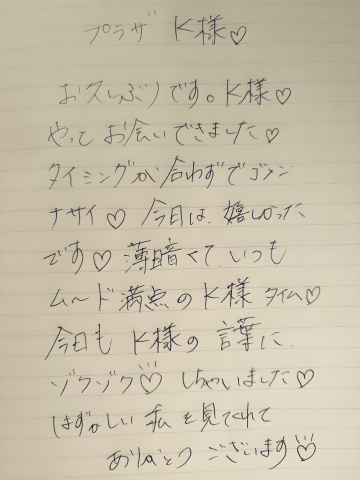 プラザ K様♡
お久しぶりです。K様♡
やって お会いできました♡
タイミングが 合わずでゴメン
ナサイ♡ 今日は、嬉しかった
です♡ 薄暗くて いつも
ムード満点の K様 タイム♡
今日も K様の 言葉に
ゾクゾク♡ しちゃいました♡
はずかしい 私を見てくれて
ありがとう ございます♡